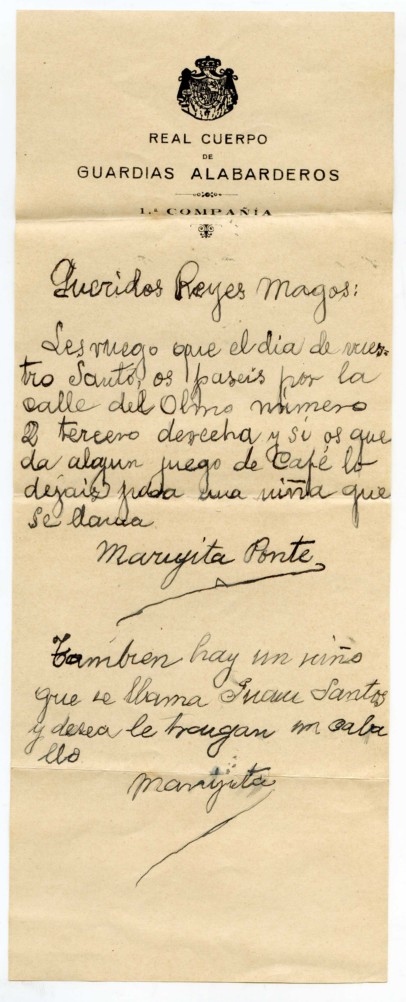 REAL CUERPO
DE
GUARDIAS ALABARDEROS
1.ª COMPAÑÍA
Queridos Reyes Magos:
Les ruego que el dia de vues-
tro Santo, os paseis por la
calle del Olmo número
2 tercero derecha y si os que
da algun juego de Café lo
dejais para una niña que
se llama
Marujita Ponte
Tambien hay un niño
que se llama Juan Santos
y desea le traigan un caba
llo
Marujita